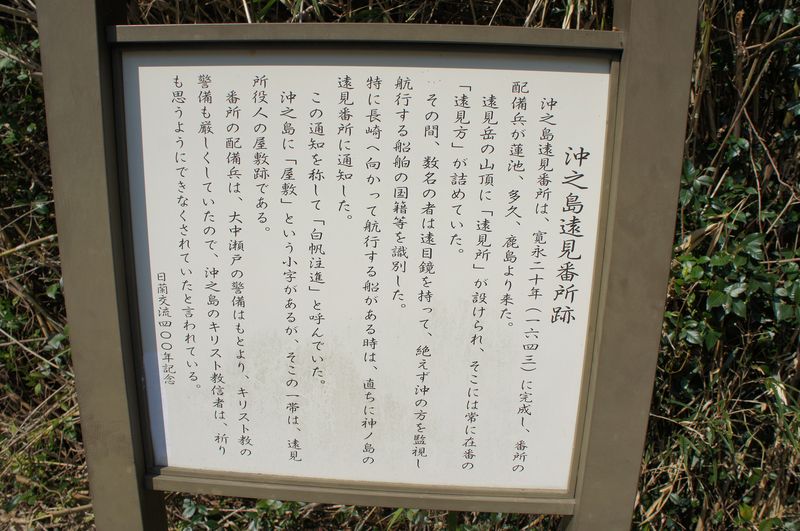 沖之島遠見番所跡
沖之島遠見番所は、寛永二十年（一六四三）に完成し、番所の
配備兵が蓮池、多久、鹿島より来た。
遠見岳の山頂に「遠見所」が設けられ、そこには常に在番の
「遠見方」が詰めていた。
その間、数名の者は遠目鏡を持って、絶えず沖の方を監視し
航行する船舶の国籍等を識別した。
特に長崎へ向かって航行する船がある時は、直ちに神ノ島の
遠見番所に通知した。
この通知を称して「白帆注進」と呼んでいた。
沖之島に「屋敷」という小字があるが、そこの一帯は、遠見
所役人の屋敷跡である。
番所の配備兵は、大中瀬戸の警備はもとより、キリスト教の
警備も厳しくしていたので、沖之島のキリスト教信者は、祈り
も思うようにできなくされていたと言われている。
日蘭交流四〇〇年記念